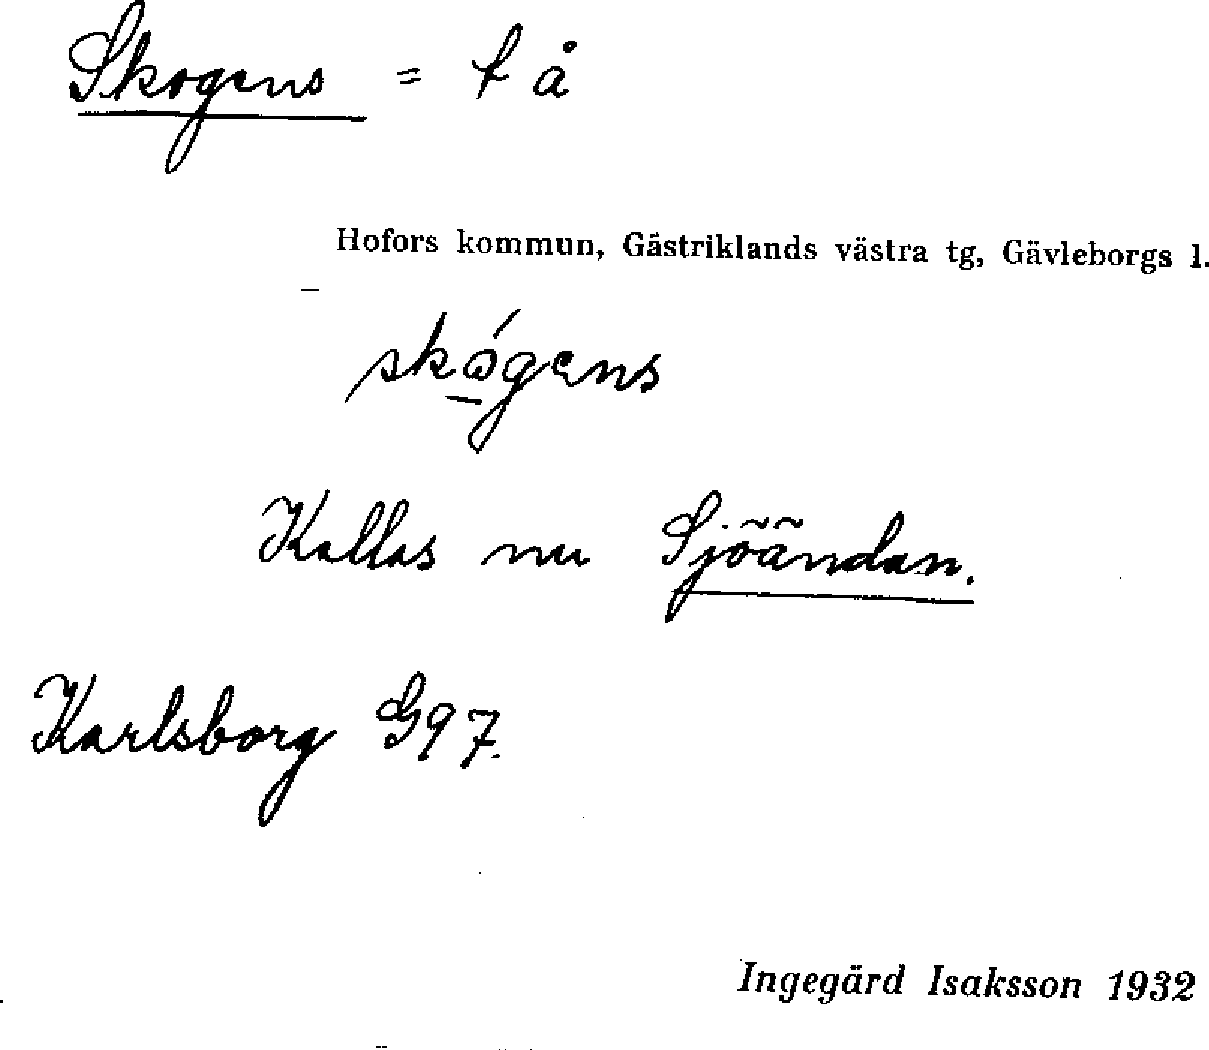 Skogens = t å
Hofors kommun, Gästriklands västra tg, Gävleborgs l.
skógens
Kallas nu Sjöändan.
Karlsborg G97.
Ingegärd Isaksson 1932